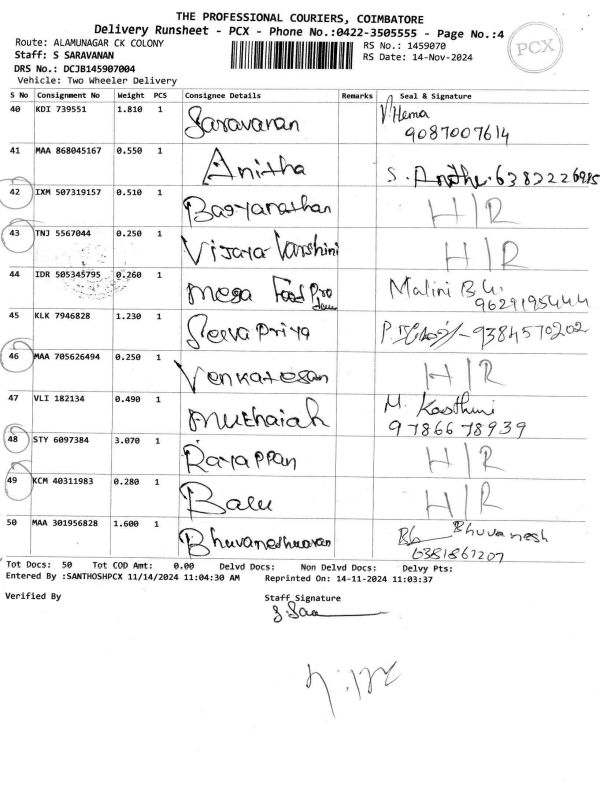 THE PROFESSIONAL COURIERS, COIMBATORE
Delivery Runsheet - PCX - Phone No.:0422-3505555 - Page No.:4
Route: ALAMUNAGAR CK COLONY RS No.: 1459070
Staff: S SARAVANAN RS Date: 14-Nov-2024
PCX
DRS No.: DCJB145907004
Vehicle: Two Wheeler Delivery
S No Consignment No Weight PCS Consignee Details Remarks Seal & Signature
40 KDI 739551 1.810 1 Saravanan V. Hema
9087007614
41 MAA 868045167 0.550 1 Anitha S. 6382226985
42 IXM 507319157 0.510 1 Bagyanathan H/R
43 TNJ 5567044 0.250 1 Vijaya Varshini H/R
44 IDR 505345795 0.260 1 Mega Food Pro Malini B G.
9629195444
45 KLK 7946828 1.230 1 Seeva Priya 9384570202
46 MAA 705626494 0.250 1 Venkatesan H/R
47 VLI 182134 0.490 1 Muthaiah M. Kasthuri
9786678939
48 STY 6097384 3.070 1 Rayappan H/R
49 KCM 40311983 0.280 1 Balu H/R
50 MAA 301956828 1.600 1 Bhuvaneshwaran Bhuvanesh
6381861207
Tot Docs: 50 Tot COD Amt: 0.00 Delvd Docs: Non Delvd Docs: Delvy Pts:
Entered By :SANTHOSHPCX 11/14/2024 11:04:30 AM Reprinted On: 14-11-2024 11:03:37
Verified By Staff Signature